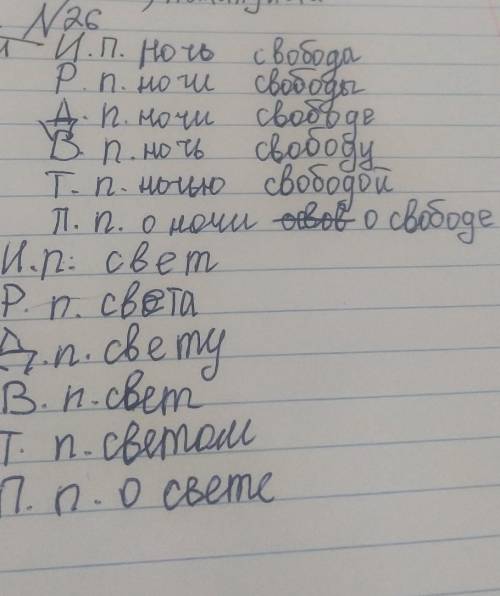 N26
И. П. ночь свобода
Р. п. ночи свободы
Д. п. ночи свободе
В. п. ночь свободу
Т. п. ночью свободой
П. п. о ночи о свободе
И. п. свет
Р. п. света
Д. п. свету
В. п. свет
Т. п. светом
П. п. о свете